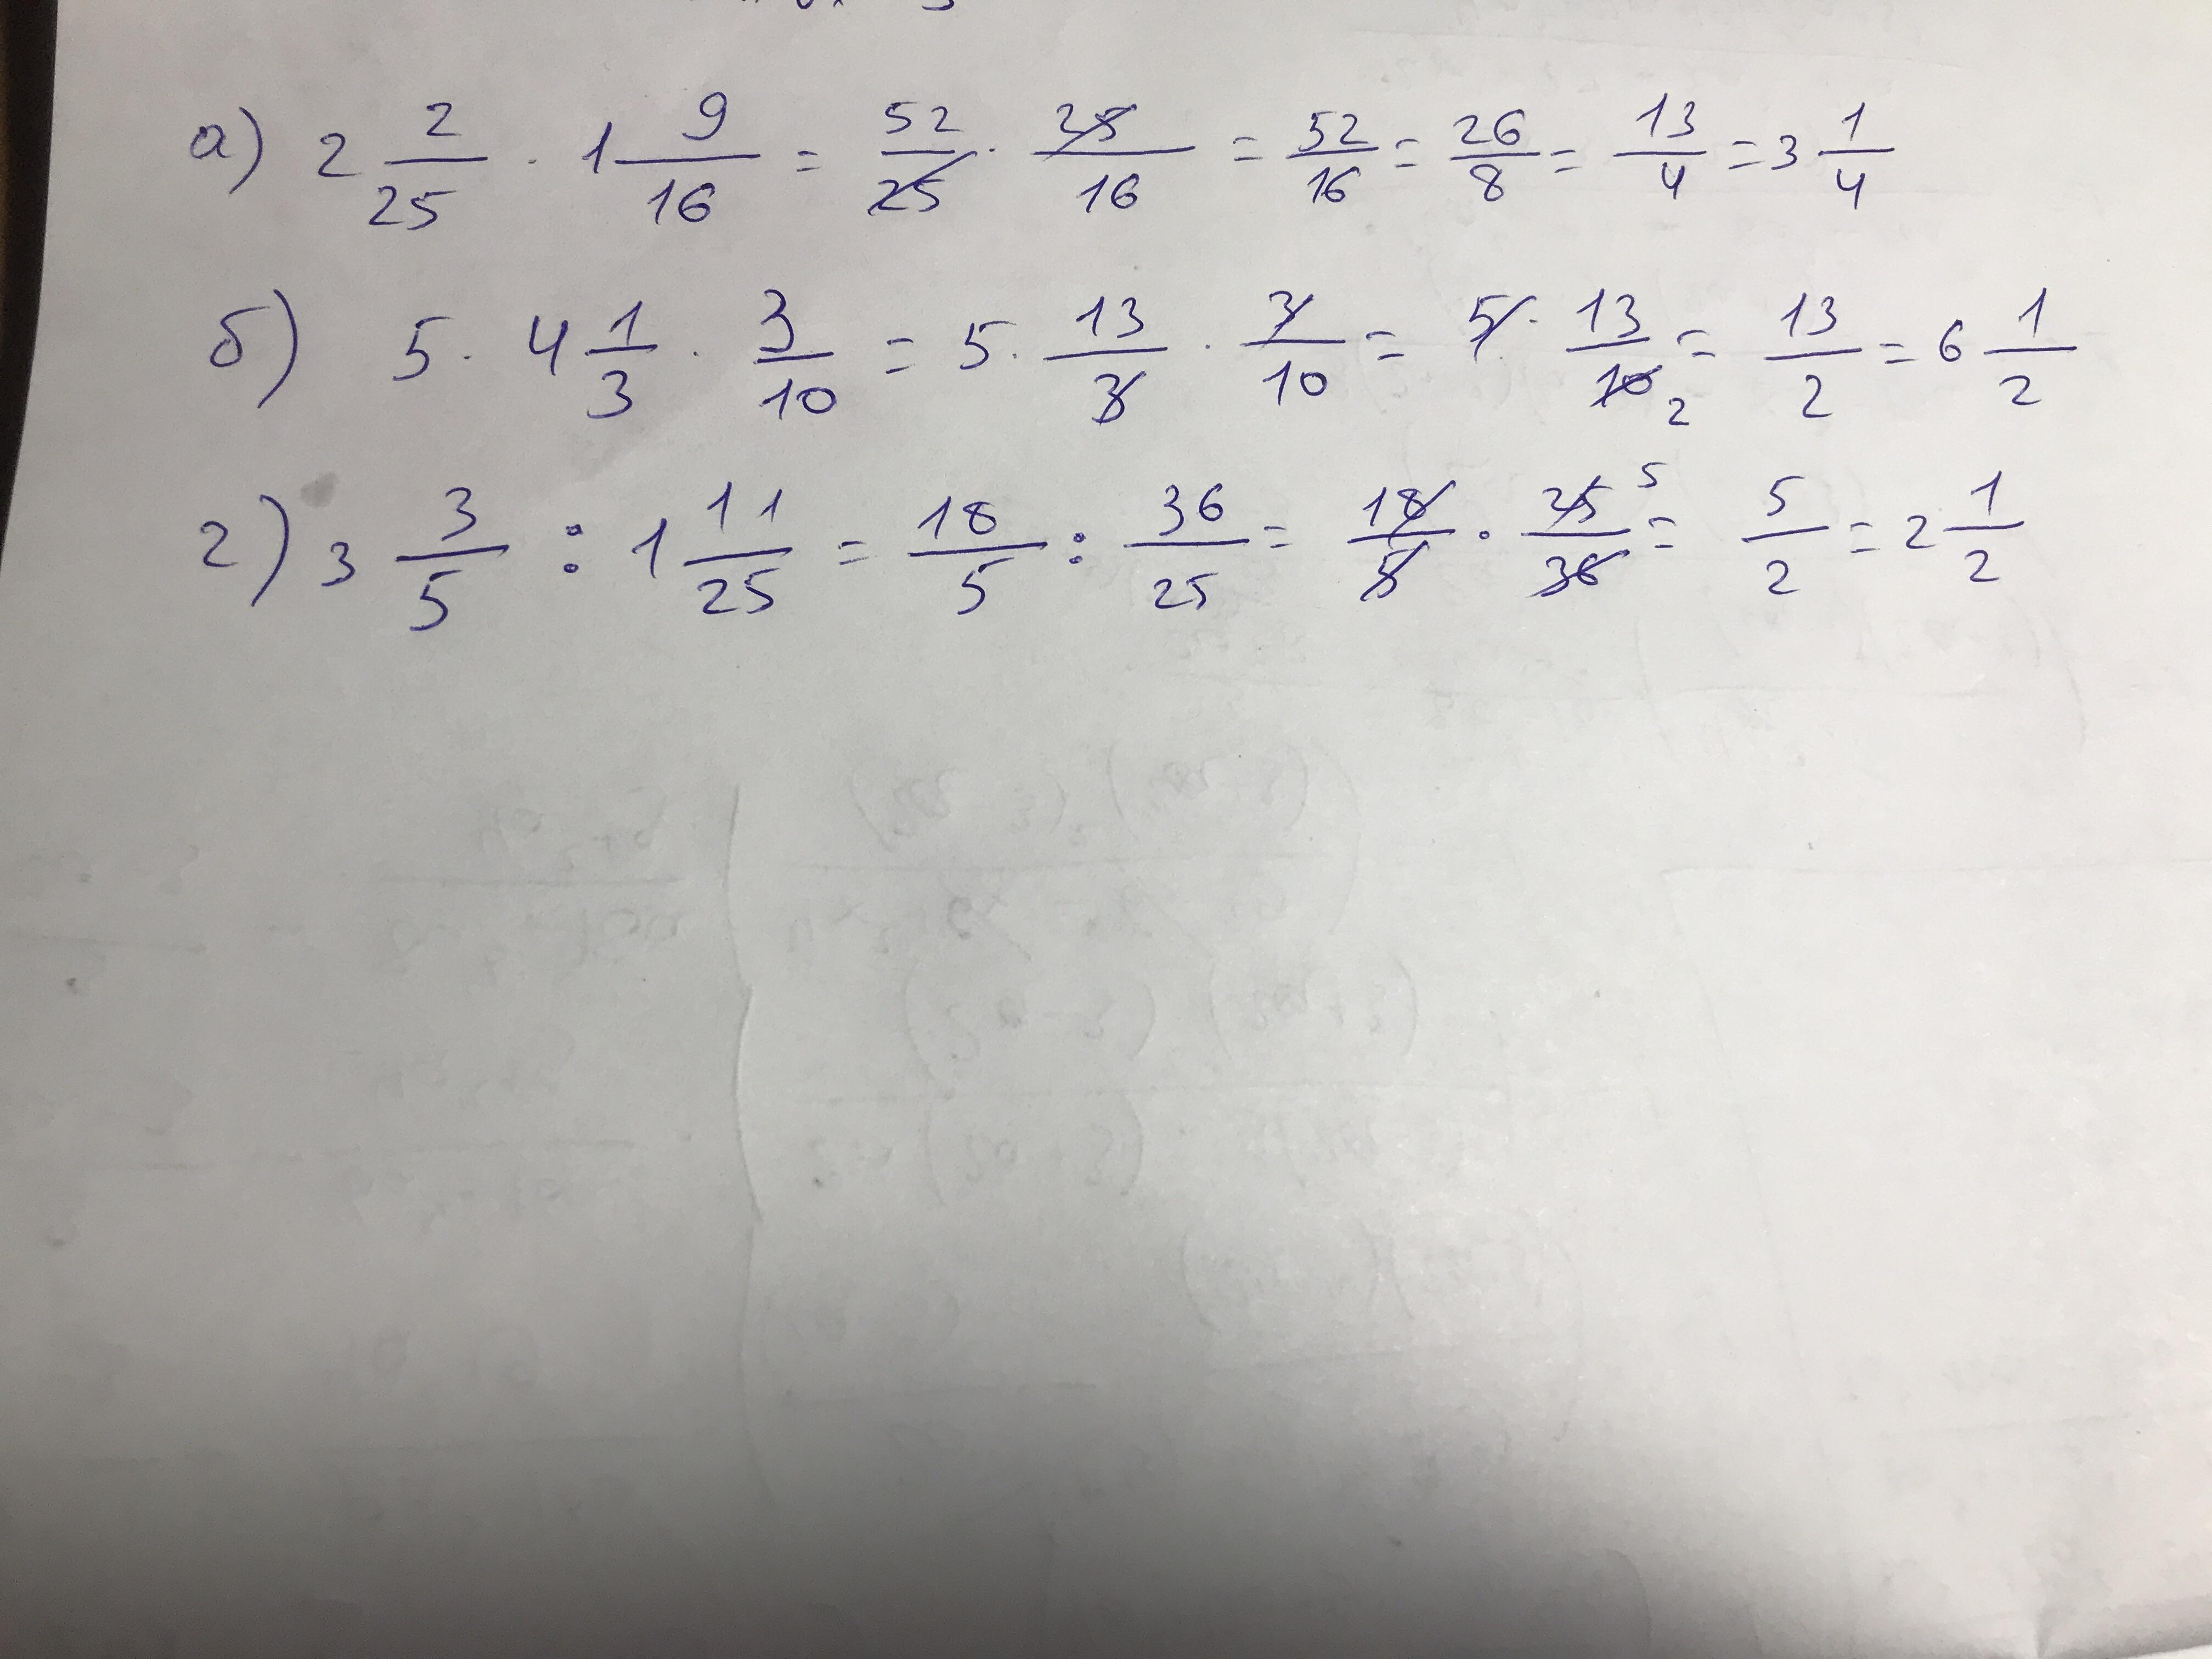 а) 2 2/25 · 1 9/16 = 52/25 · 25/16 = 52/16 = 26/8 = 13/4 = 3 1/4
б) 5 · 4 1/3 · 3/10 = 5 · 13/3 · 3/10 = 5 · 13/10 2 = 13/2 = 6 1/2
г) 3 3/5 : 1 11/25 = 18/5 : 36/25 = 18/5 · 25 5/36 = 5/2 = 2 1/2